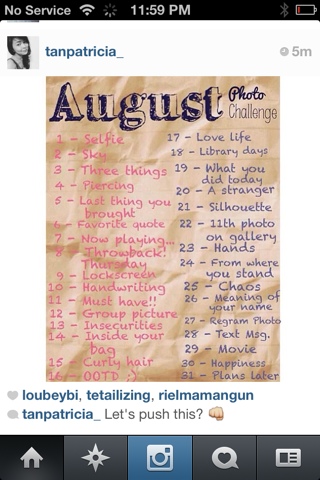 No Service 11:59 PM
tanpatricia_ 5m
August Photo Challenge
1 - Selfie
2 - Sky
3 - Three things
4 - Piercing
5 - Last thing you
brought
6 - Favorite quote
7 - Now playing...
8 - Throwback!
Thursday
9 - Lockscreen
10 - Handwriting
11 - Must have!!
12 - Group picture
13 - Insecurities
14 - Inside your
bag
15 - Curly hair
16 - OOTD :)
17 - Love life
18 - Library days
19 - What you
did today
20 - A stranger
21 - Silhouette
22 - 11th photo
on gallery
23 - Hands
24 - From where
you stand
25 - Chaos
26 - Meaning of
your name
27 - Regram Photo
28 - Text Msg.
29 - Movie
30 - Happiness
31 - Plans later
loubeybi, tetailizing, rielmamangun
tanpatricia_ Let's push this? 👊